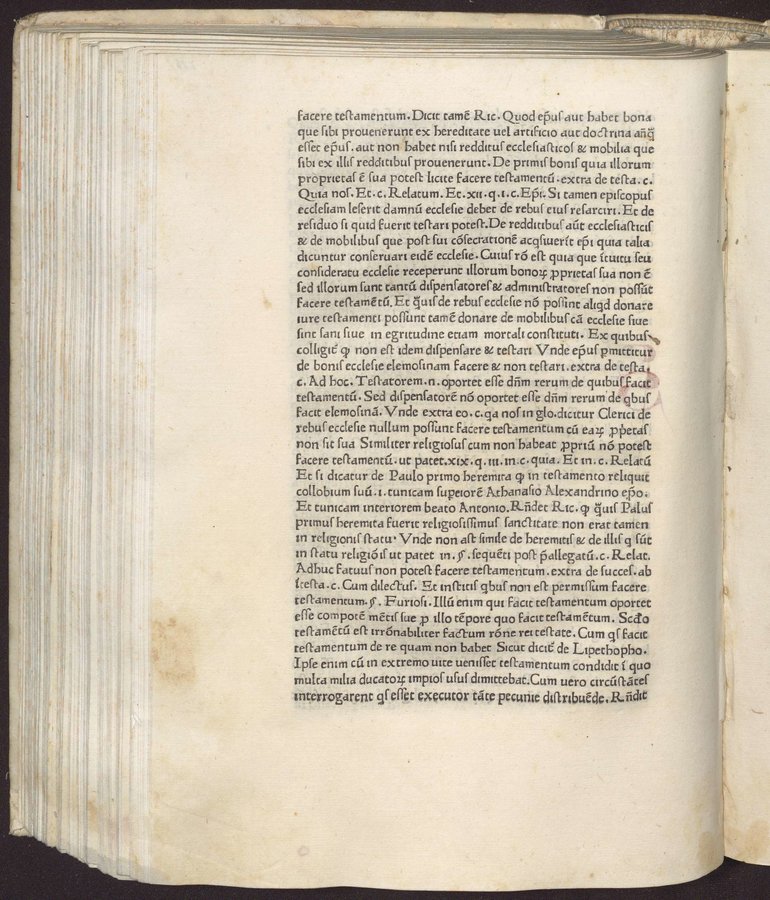 facere testamentum. Dicit tamẽ Ric. Quod ep̃us aut habet bona
que sibi prouenerunt ex hereditate uel artificio aut doctrina añq̃
esset ep̃us. aut non habet nisi redditus ecclesiasticos & mobilia que
sibi ex illis redditibus prouenerunt. De primis bonis quia illorum
proprietas ẽ sua potest licite facere testamentũ. extra de testa. c.
Quia nos. Et. c. Relatum. Et. xii. q. i. c. Ep̃i. Si tamen episcopus
ecclesiam leserit damnũ ecclesie debet de rebus eius resarciri. Et de
residuo si quid fuerit testari potest. De redditibus aũt ecclesiasticis
& de mobilibus que post sui cõsecrationẽ acq̃siuerĩt ep̃i quia talia
dicuntur conseruari eidẽ ecclesie. Cuius rõ est quia que ĩtuitu seu
consideratu ecclesie receperunt illorum bonoꝝ ꝓprietas sua non ẽ
sed illorum sunt tantũ dispensatores & administratores non possũt
facere testamẽtũ. Et q̃uis de rebus ecclesie nõ possint aliq̃d donare
iure testamenti possunt tamẽ donare de mobilibus cã ecclesie siue
sint sani siue in egritudine etiam mortali constituti. Ex quibus
colligit̃ ꝙ non est idem dispensare & testari Vnde ep̃us ꝑmittitur
de bonis ecclesie elemosinam facere & non testari. extra de testa.
c. Ad hoc. Testatorem. n. oportet esse dñm rerum de quibus facit
testamentũ. Sed dispensatorẽ nõ oportet esse dñm rerum de q̃bus
facit elemosinã. Vnde extra eo. c. q̃a nos in glo. dicitur Clerici de
rebus ecclesie nullum possunt facere testamentum cũ eaꝝ ꝓp̃etas
non sit sua Similiter religiosus cum non habeat ꝓpriũ nõ potest
facere testamentũ. ut patet. xix. q. iii. in. c. quia. Et in. c. Relatũ
Et si dicatur de Paulo primo heremita ꝙ in testamento reliquit
collobium suũ. i. tunicam supeiorẽ Athanasio Alexandrino ep̃o.
Et tunicam interiorem beato Antonio. Rñdet Ric. ꝙ q̃uis Palus
primus heremita fuerit religiosissimus sanctitate non erat tamen
in religionis statu. Vnde non ast simile de heremitis & de illis q̃ sũt
in statu religiõis ut patet in. §. sequẽti post p̃allegatũ. c. Relat.
Adhuc fatuus non potest facere testamentum. extra de succes. ab
ĩtesta. c. Cum dilectus. Et institis q̃bus non est permissum facere
testamentum. §. Furiosi. Illũ enim qui facit testamentum oportet
esse compotẽ mẽtis sue ꝓ illo tẽpore quo facit testamẽtum. Scđo
testamẽtũ est irrõnabiliter factum rõne rei testate. Cum q̃s facit
testamentum de re quam non habet Sicut dicit̃ de Lipethopho.
Ipse enim cũ in extremo uite uenisset testamentum condidit ĩ quo
multa milia ducatoꝝ impios usus dimittebat. Cum uero circũstãtes
interrogarent q̃s esset executor tãte pecunie distribuẽde. Rñdit